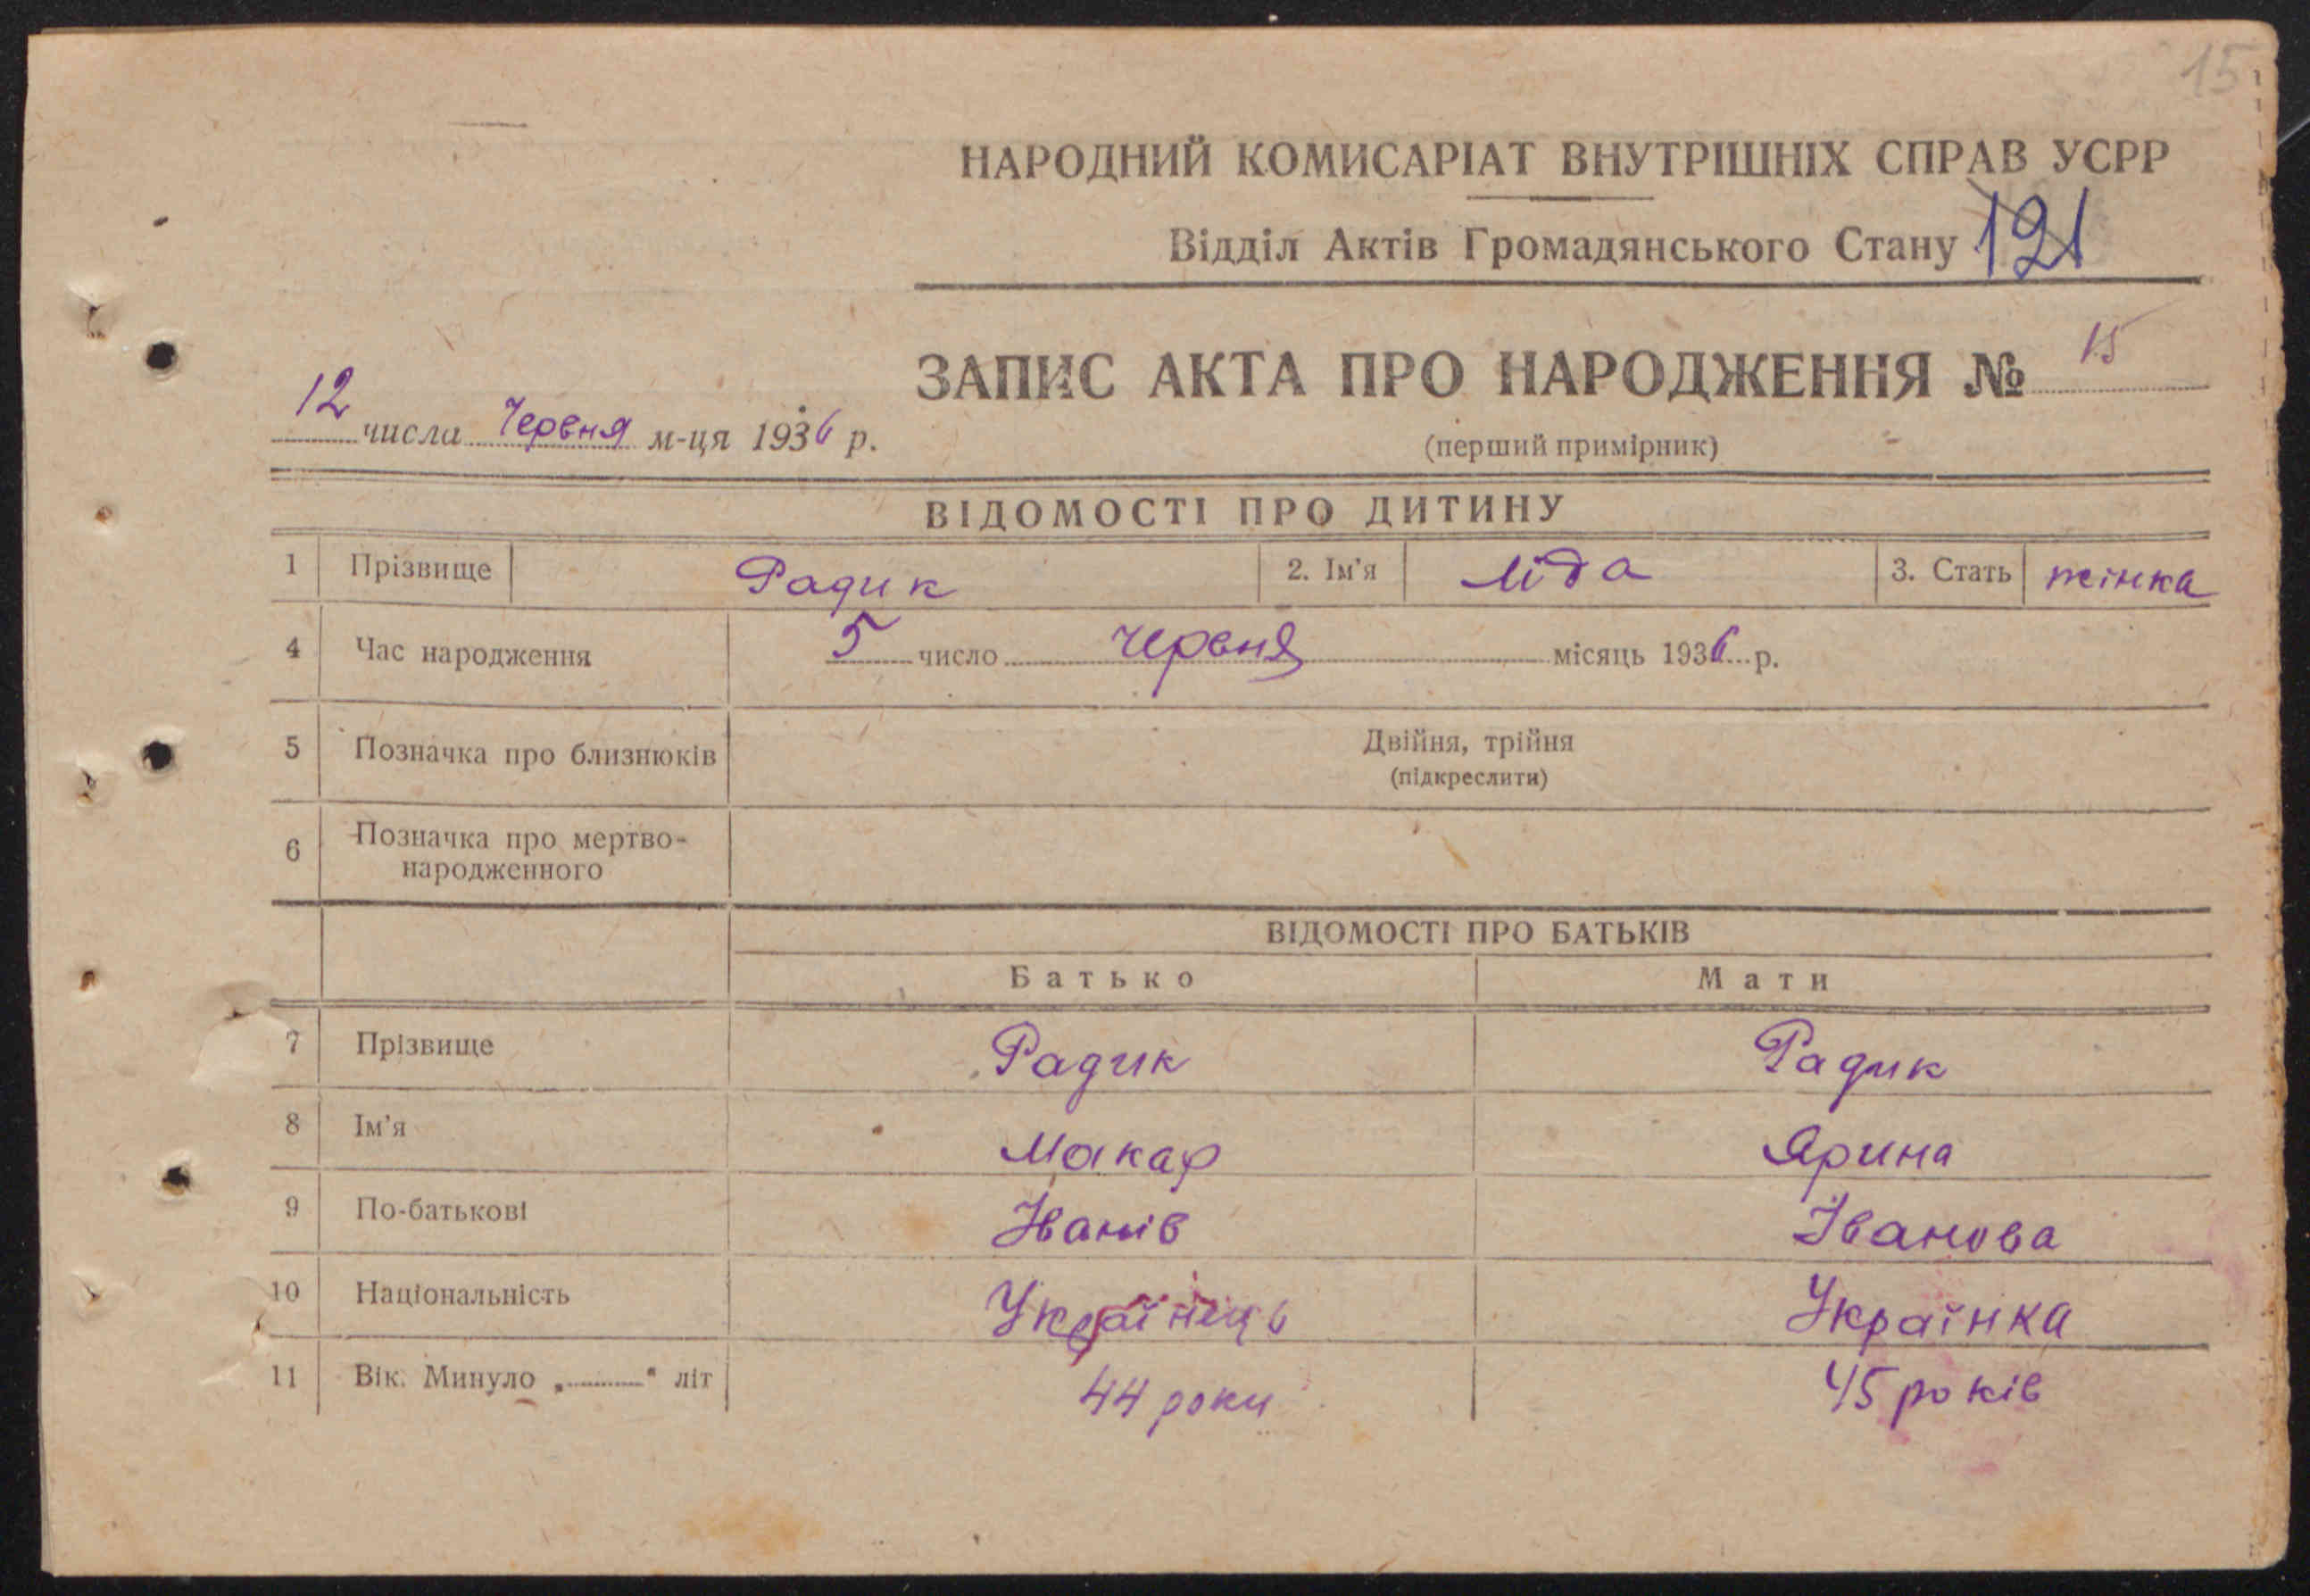 15
НАРОДНИЙ КОМИСАРІАТ ВНУТРІШНІХ СПРАВ УСРР
Відділ Актів Громадянського Стану 121
ЗАПИС АКТА ПРО НАРОДЖЕННЯ № 15
12 числа Червня м-ця 1936 р.
(перший примірник)
ВІДОМОСТІ ПРО ДИТИНУ
1 Прізвище Радик 2. Ім'я Ліда 3. Стать жінка
4 Час народження 5 число червня місяць 1936 р.
5 Позначка про близнюків Двійня, трійня
(підкреслити)
6 Позначка про мертво-
народженного
ВІДОМОСТІ ПРО БАТЬКІВ
Батько Мати
7 Прізвище Радик Радик
8 Ім'я Макар Ярина
9 По-батькові Іванів Іванова
10 Національність Українець Українка
11 Вік. Минуло „ " літ 44 роки 45 років